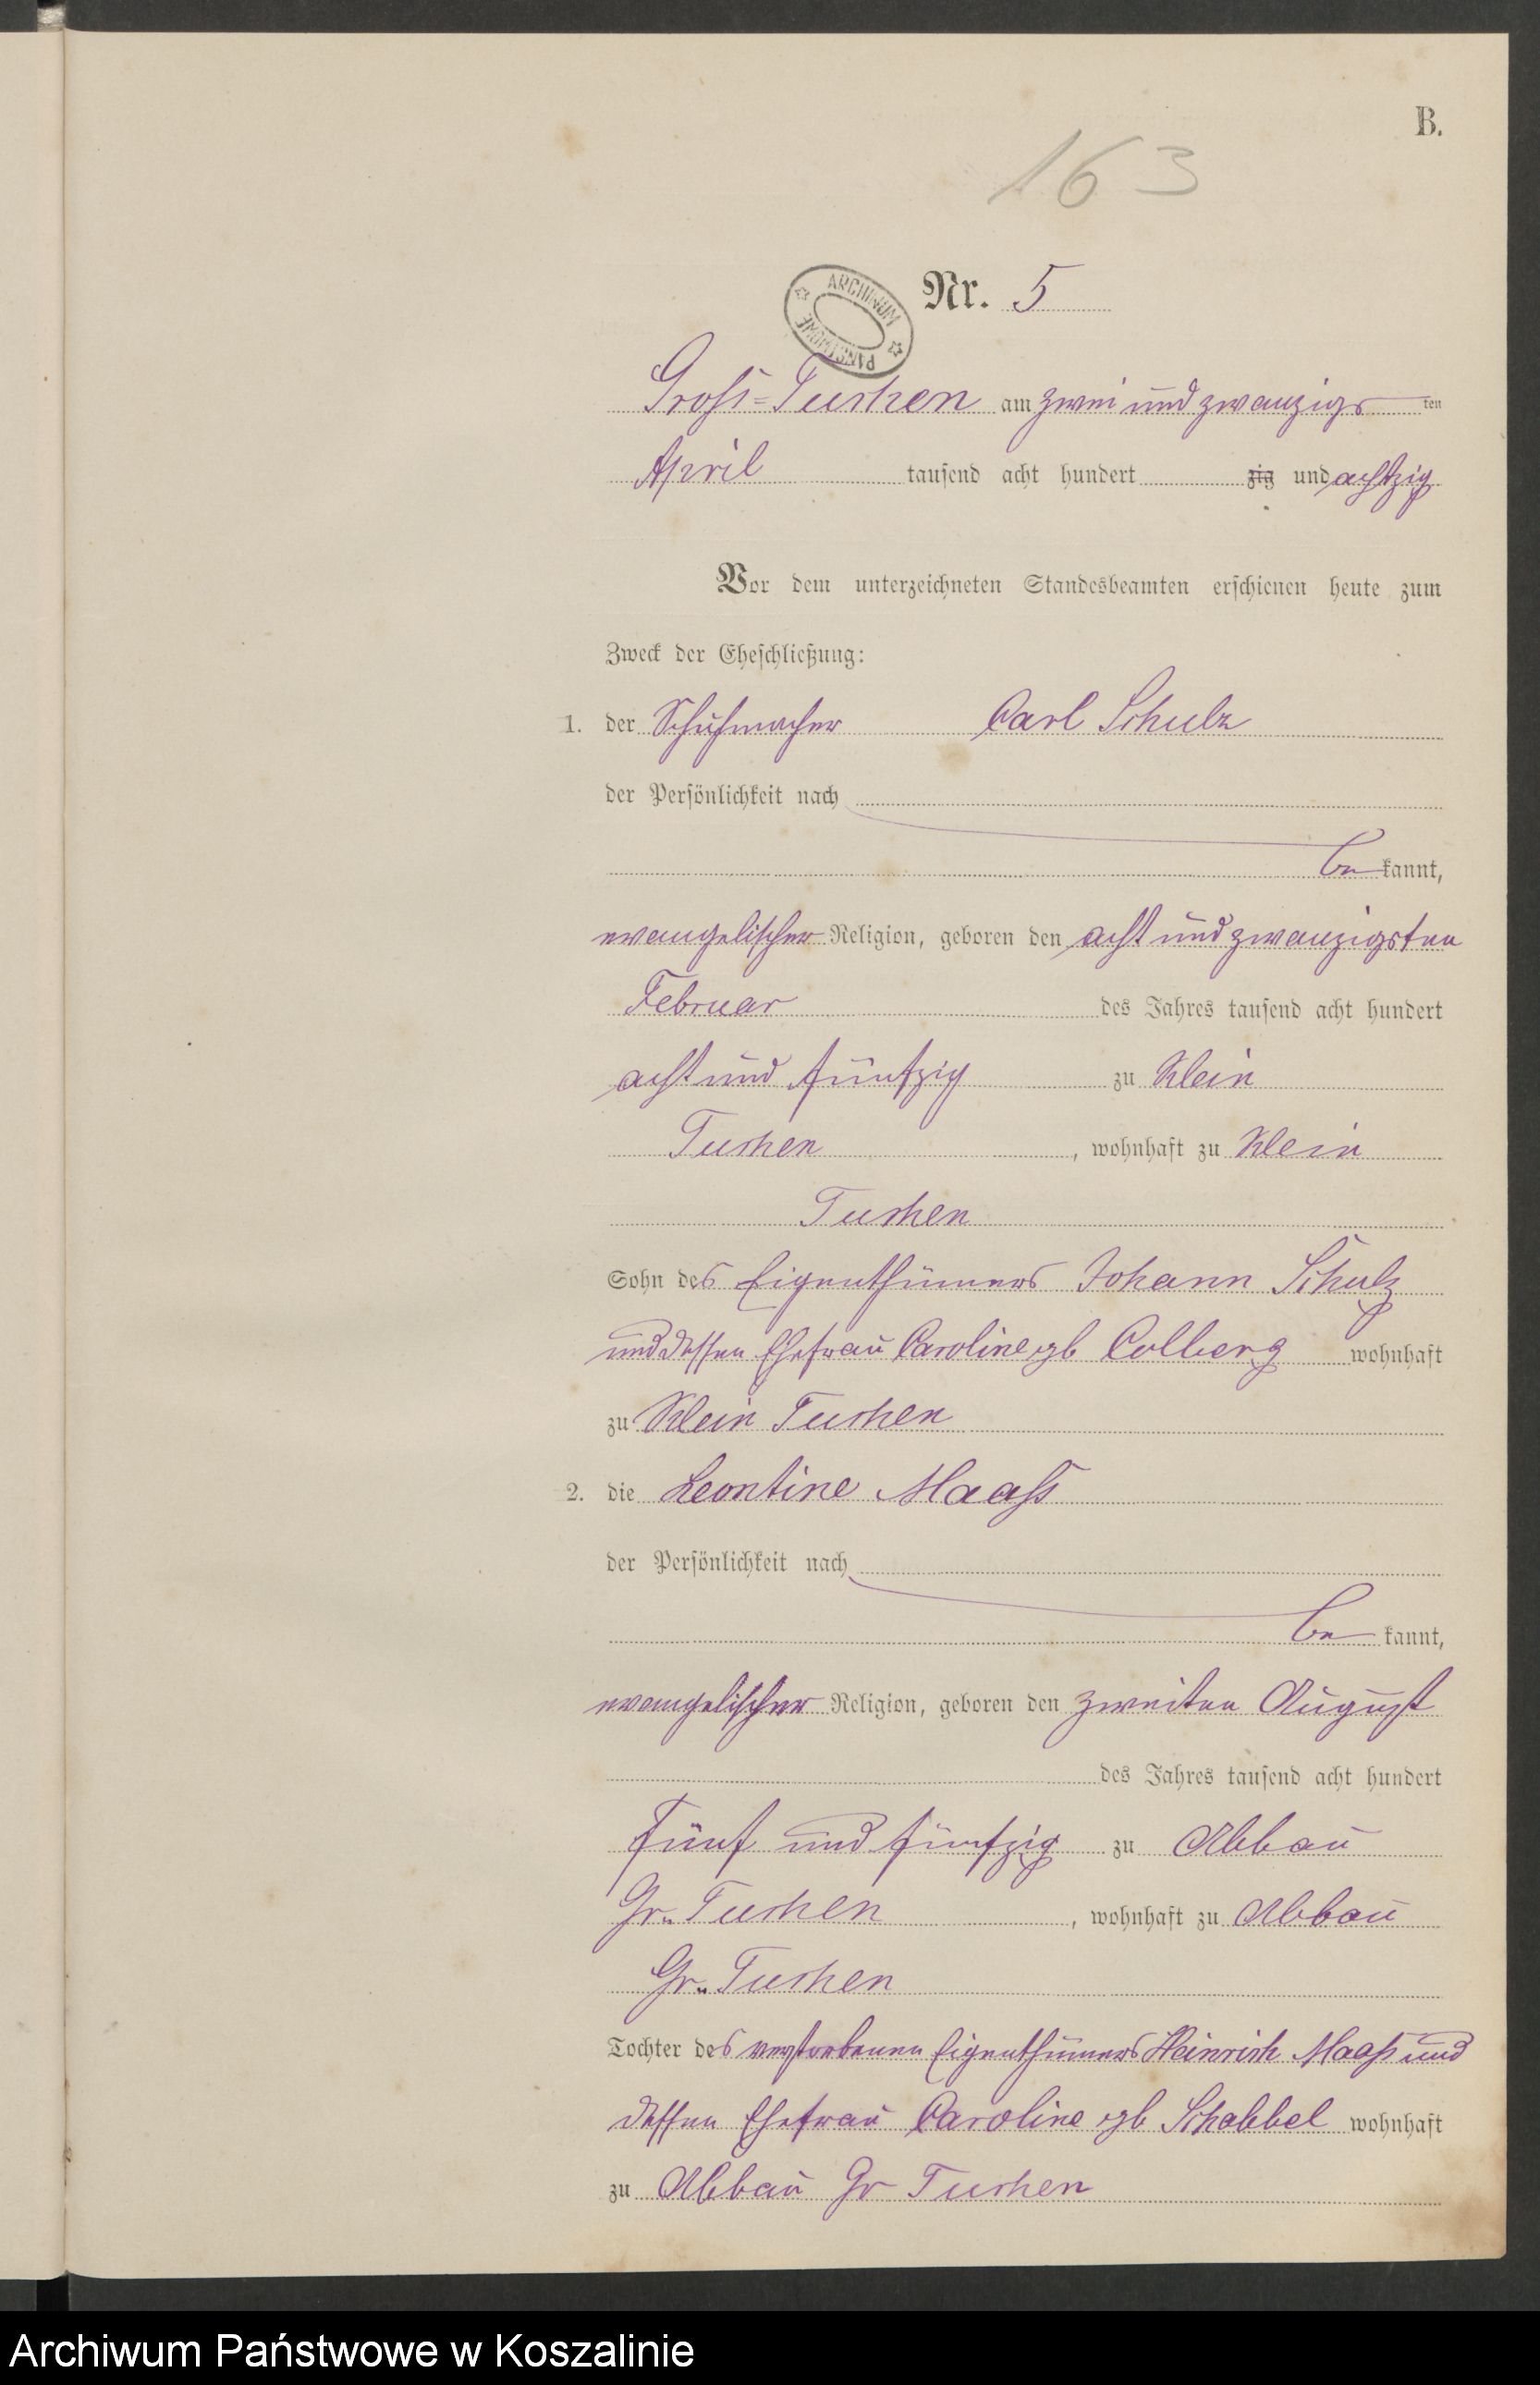 B.
163
Nr. 5
ARCHIWUM PAŃSTWOWE
Gross=Tuchen am zwei und zwanzigsten
April tausend acht hundert zig und achtzig
Vor dem unterzeichneten Standesbeamten erschienen heute zum
Zweck der Eheschließung:
1. der Schuhmacher Carl Schulz
der Persönlichkeit nach
be kannt,
evangelischer Religion, geboren den acht und zwanzigsten
Februar des Jahres tausend acht hundert
acht und fünfzig zu Klein
Tuchen, wohnhaft zu Klein
Tuchen
Sohn des Eigenthümers Johann Schulz
und dessen Ehefrau Caroline gb Collberg wohnhaft
zu Klein Tuchen
2. die Leontine Maass
der Persönlichkeit nach
be kannt,
evangelischer Religion, geboren den zweiten August
des Jahres tausend acht hundert
fünf und fünfzig zu Abbau
Gr. Tuchen, wohnhaft zu Abbau
Gr. Tuchen
Tochter des verstorbenen Eigenthümers Heinrich Maass und
dessen Ehefrau Caroline gb Schabbel wohnhaft
zu Abbau Gr Tuchen
Archiwum Państwowe w Koszalinie